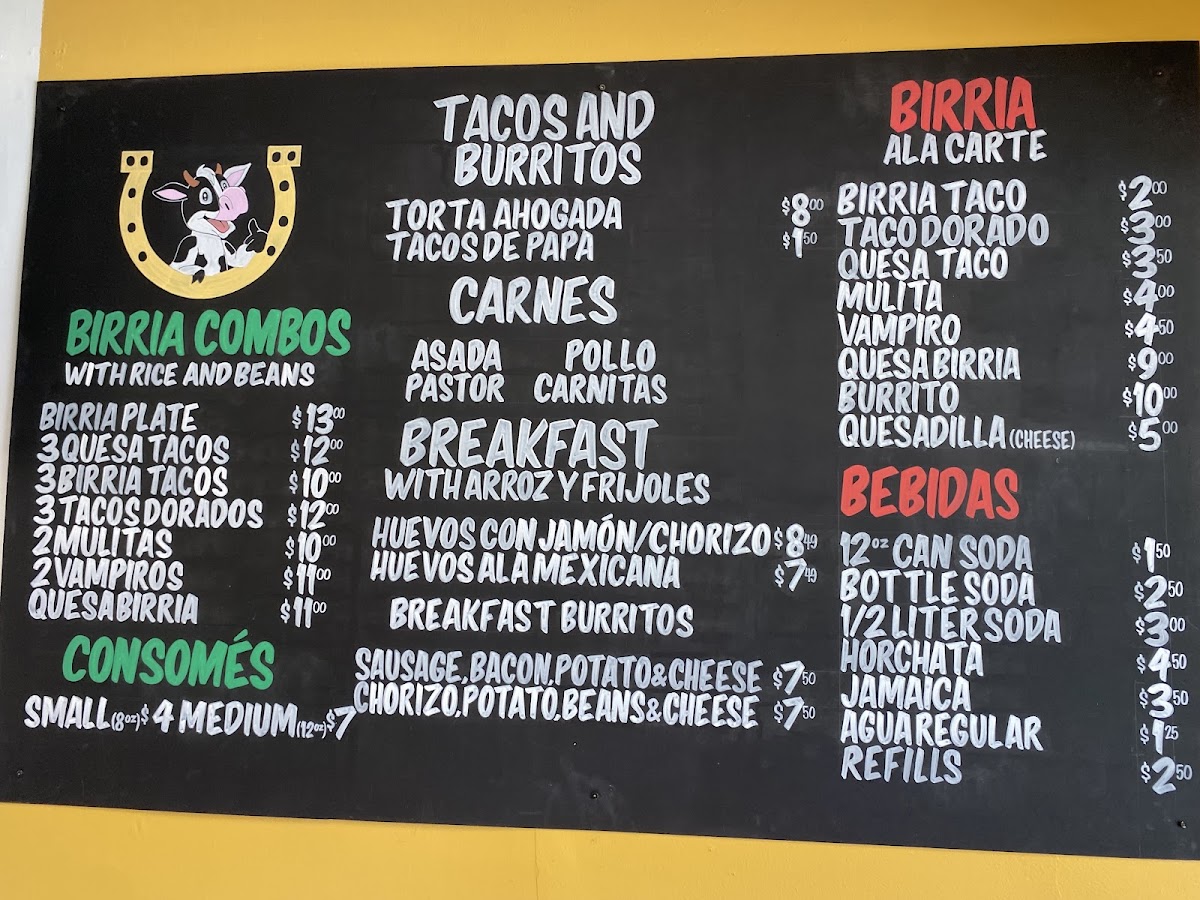 BIRRIA COMBOS
WITH RICE AND BEANS
BIRRIA PLATE $13.00
3 QUESA TACOS $12.00
3 BIRRIA TACOS $10.00
3 TACOS DORADOS $12.00
2 MULITAS $10.00
2 VAMPIROS $11.00
QUESABIRRIA $11.00
CONSOMÉS
SMALL (8oz) $4 MEDIUM (12oz) $7
TACOS AND
BURRITOS
TORTA AHOGADA $8.00
TACOS DE PAPA $1.50
CARNES
ASADA POLLO
PASTOR CARNITAS
BREAKFAST
WITH ARROZ Y FRIJOLES
HUEVOS CON JAMÓN/CHORIZO $8.49
HUEVOS ALA MEXICANA $7.49
BREAKFAST BURRITOS
SAUSAGE, BACON, POTATO & CHEESE $7.50
CHORIZO, POTATO, BEANS & CHEESE $7.50
BIRRIA
ALA CARTE
BIRRIA TACO $2.00
TACO DORADO $3.00
QUESA TACO $3.50
MULITA $4.00
VAMPIRO $4.50
QUESABIRRIA $9.00
BURRITO $10.00
QUESADILLA (CHEESE) $5.00
BEBIDAS
12oz CAN SODA $1.50
BOTTLE SODA $2.50
1/2 LITER SODA $3.00
HORCHATA $4.50
JAMAICA $3.50
AGUA REGULAR $1.25
REFILLS $2.50